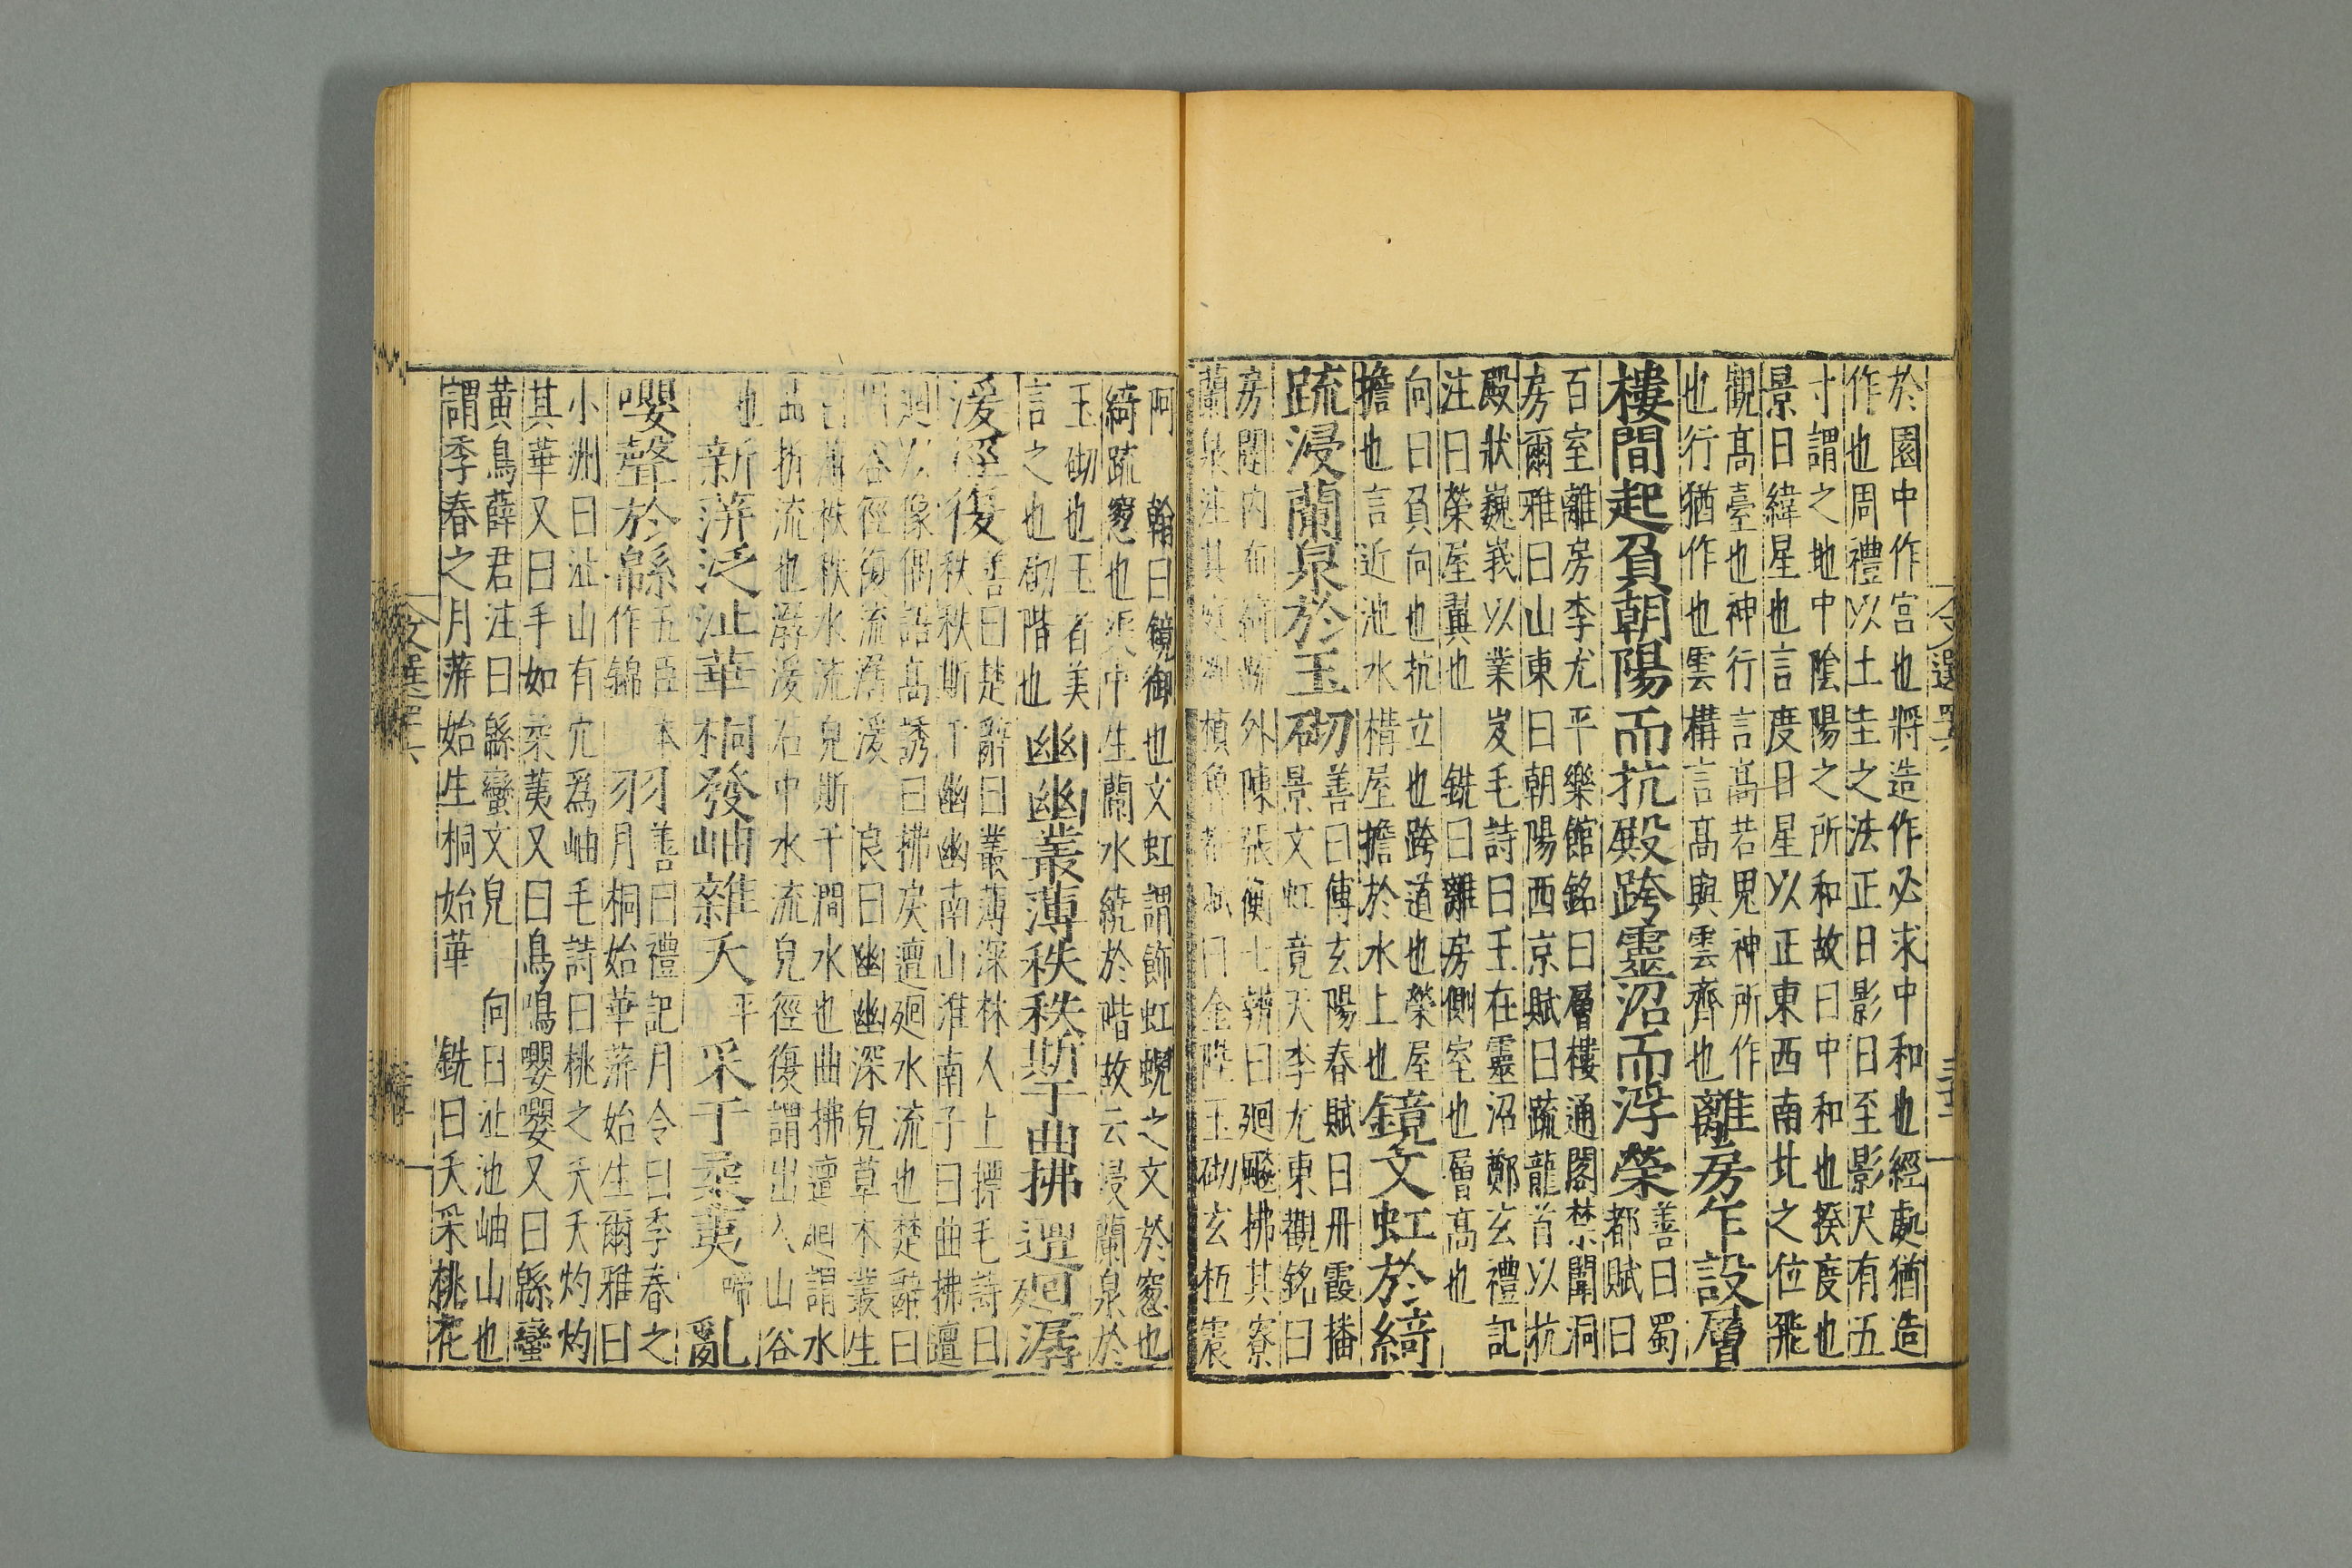 於園中作宫也將造作必求中和也經處猶造
作也周禮以土圭之法正日影日至影尺有五
寸謂之地中陰陽之所和故曰中和也揆度也
景日緯星也言度日星以正東西南北之位飛
觀髙臺也神行言髙若思神所作
也行猶作也雲構言髙與雲齊也離房乍設層
樓間起負朝陽而抗殿跨靈沼而浮榮善曰蜀
都賦曰
百室離房李尤平樂館銘曰層樓通閣禁闈洞
房爾雅曰山東曰朝陽西京賦曰疏龍首以抗
殿狀巍峩以業岌毛詩曰王在靈沼鄭玄禮記
注曰榮屋翼也 銑曰離房側室也層髙也
向曰負向也抗立也跨道也榮屋
擔也言近池水構屋擔於水上也鏡文虹於綺
疏浸蘭泉於玉砌善曰傅玄陽春賦曰丹霞播
景文虹竟天李尤東觀銘曰
房闥内布綺疏外陳張衡七辨曰廻飈拂其寮
蘭泉注其庭劉楨魯都賦曰金陛玉砌玄枑雲
柯 翰曰鏡御也文虹謂飾虹蜺之文於窓也
綺疏窓也泉中生蘭水繞於階故云浸蘭泉於
玉砌也玉者美
言之也砌階也幽幽叢薄秩秩斯干曲拂邅廻潺
湲徑復善曰楚辭曰叢薄深林人上慄毛詩曰
秩秩斯干幽幽南山淮南子曰曲拂邅
廻以像偶語髙誘曰拂戾邅廻水流也楚辭曰
川谷徑復流潺湲 良曰幽幽深皃草木叢生
曰薄秩秩水流皃斯干澗水也曲拂邅廻謂水
曲折流也潺湲石中水流皃徑復謂出入山谷
也新蓱泛沚華桐發岫雜夭平采于柔荑啼亂
嚶聲於緜五臣本
作錦羽善曰禮記月令曰季春之
月桐始華蓱始生爾雅曰
小洲曰沚山有穴爲岫毛詩曰桃之夭夭灼灼
其華又曰手如柔荑又曰鳥鳴嚶嚶又曰緜蠻
黄鳥薛君注曰緜蠻文皃 向曰沚池岫山也
謂季春之月蓱始生桐始華 銑曰夭采桃花